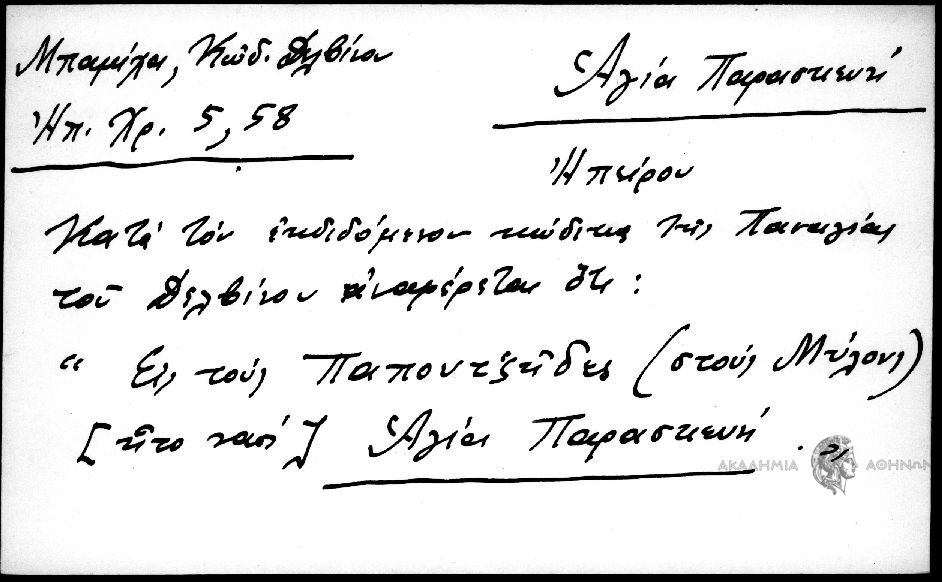 Μπαμίχα, Κώδ. Δελβίνου
Ἠπ. Χρ. 5, 58
Ἁγία Παρασκευή
Ἠπείρου
Κατά τόν ἐκδιδόμενον κώδικα τῆς Παναγίας
τοῦ Δελβίνου ἀναφέρεται ὅτι:
“ Εἰς τούς Παπουτζῆδες (στούς Μύλους)
[ἦτο ναός] Ἁγία Παρασκευή. ”
ΑΚΑΔΗΜΙΑ ΑΘΗΝΩΝ